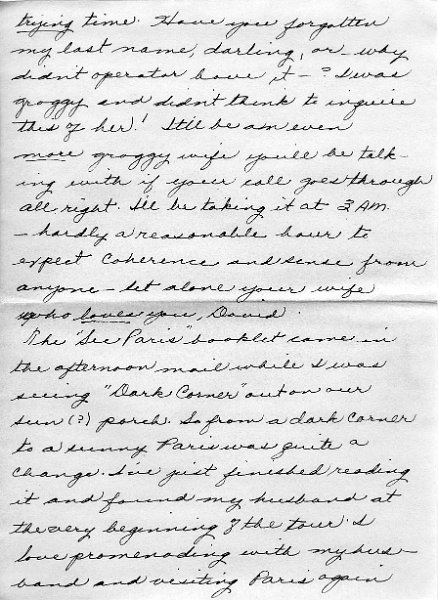 trying time. Have you forgotten
my last name, darling, or - why
didn't operator have it - ? I was
groggy and didn't think to inquire
this of her! It'll be an even
more groggy wife you'll be talk-
ing with if your call goes through
all right. I'll be taking it at 3 A.M.
- hardly a reasonable hour to
expect coherence and sense from
anyone - let alone your wife
who loves you, David.
The "See Paris" booklet came in
the afternoon mail while I was
seeing "Dark Corner" out on our
sun (?) porch. So from a dark corner
to a sunny Paris was quite a
change. I've just finished reading
it and found my husband at
the very beginning of the tour. I
love promenading with my hus-
band and visiting Paris again